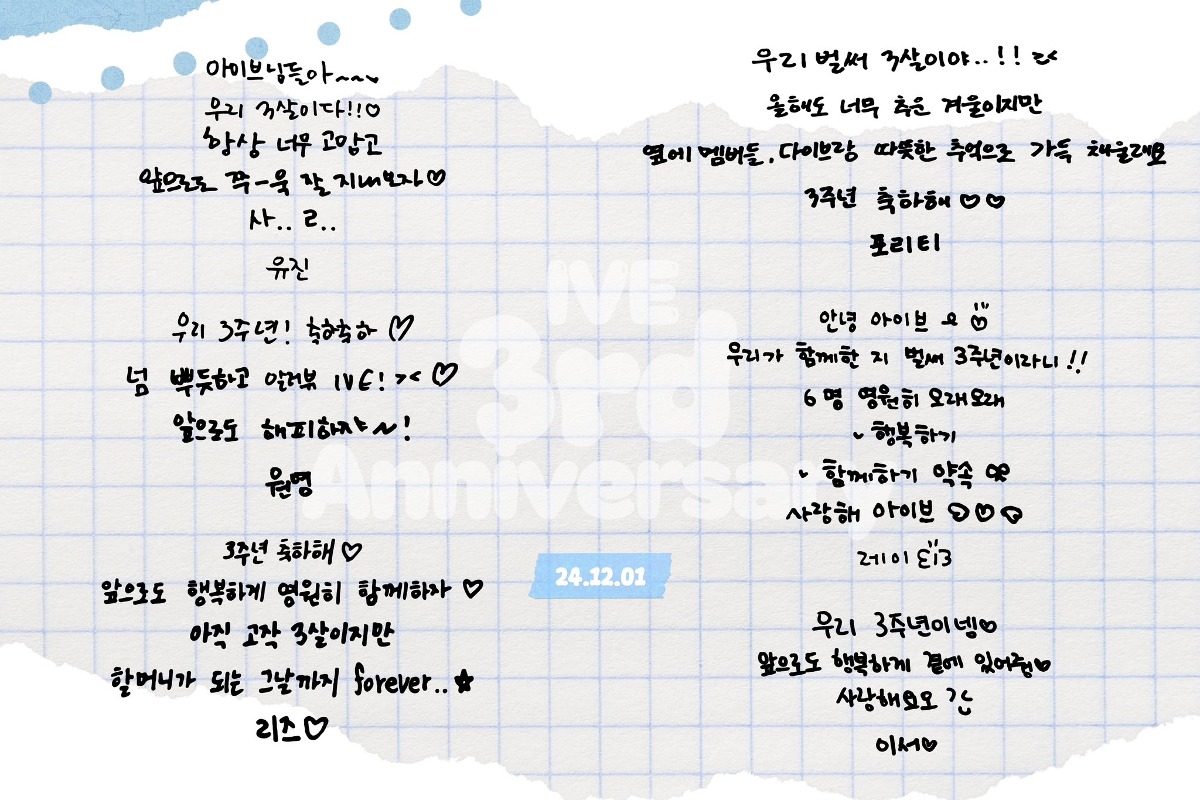 아이브님들아~~~
우리 3살이다!!♡
항상 너무 고맙고
앞으로도 쭈-욱 잘 지내보자♡
사.. ㄹ..
유진
우리 3주년! 축하축하 ♡
넘 뿌듯하고 알러뷰 IVE! >< ♡
앞으로도 해피하쟈~!
원영
3주년 축하해 ♡
앞으로도 행복하게 영원히 함께하자 ♡
아직 고작 3살이지만
할머니가 되는 그날까지 forever..☆
리즈♡
우리 벌써 3살이야..!! ><
올해도 너무 추운 겨울이지만
옆에 멤버들, 다이브랑 따뜻한 추억으로 가득 채울래요
3주년 축하해 ♡♡
포리티
안녕 아이브
우리가 함께한 지 벌써 3주년이라니!!
6명 영원히 오래오래
행복하기
함께하기 약속
사랑해 아이브 ♡♡♡
레이
우리 3주년이넹♡
앞으로도 행복하게 곁에 있어줭♡
사랑해요오
이서♡
IVE
3rd
Anniversary
24.12.01